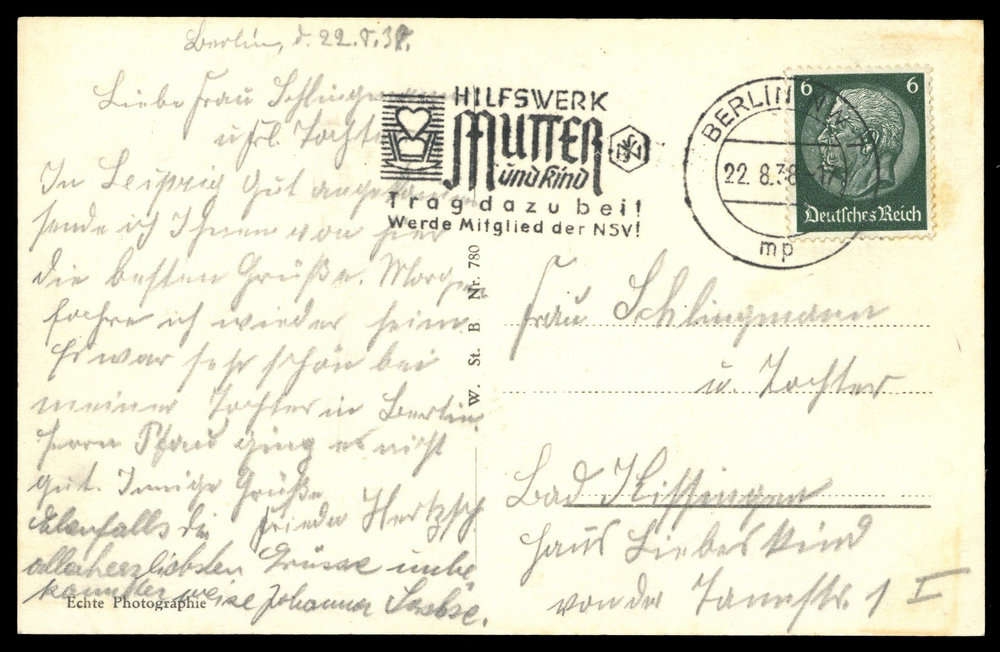 Berlin, d. 22.8.38.
Liebe Frau Schlingmann
u. Frl. Tochter
In Leipzig gut angekommen
sende ich Ihnen von hier
die besten Grüße. Morgen
fahre ich wieder heim.
Es war sehr schön bei
meiner Tochter in Berlin.
Herrn Pfau ging es nicht
gut. Innige Grüße
Frieda Hertzsch
Ebenfalls die
allerherzlichsten Grüsse unbe
kannterweise Johanna
Echte Photographie
W. St. B Nr. 780
HILFSWERK
MUTTER
und Kind
NSV
Tragdazu bei!
Werde Mitglied der NSV!
BERLIN NW
22.8.38
mp
6 6
Deutsches Reich
Frau Schlingmann
u. Tochter
Bad Kissingen
Haus Liebeskind
von der Tannstr. 1 I